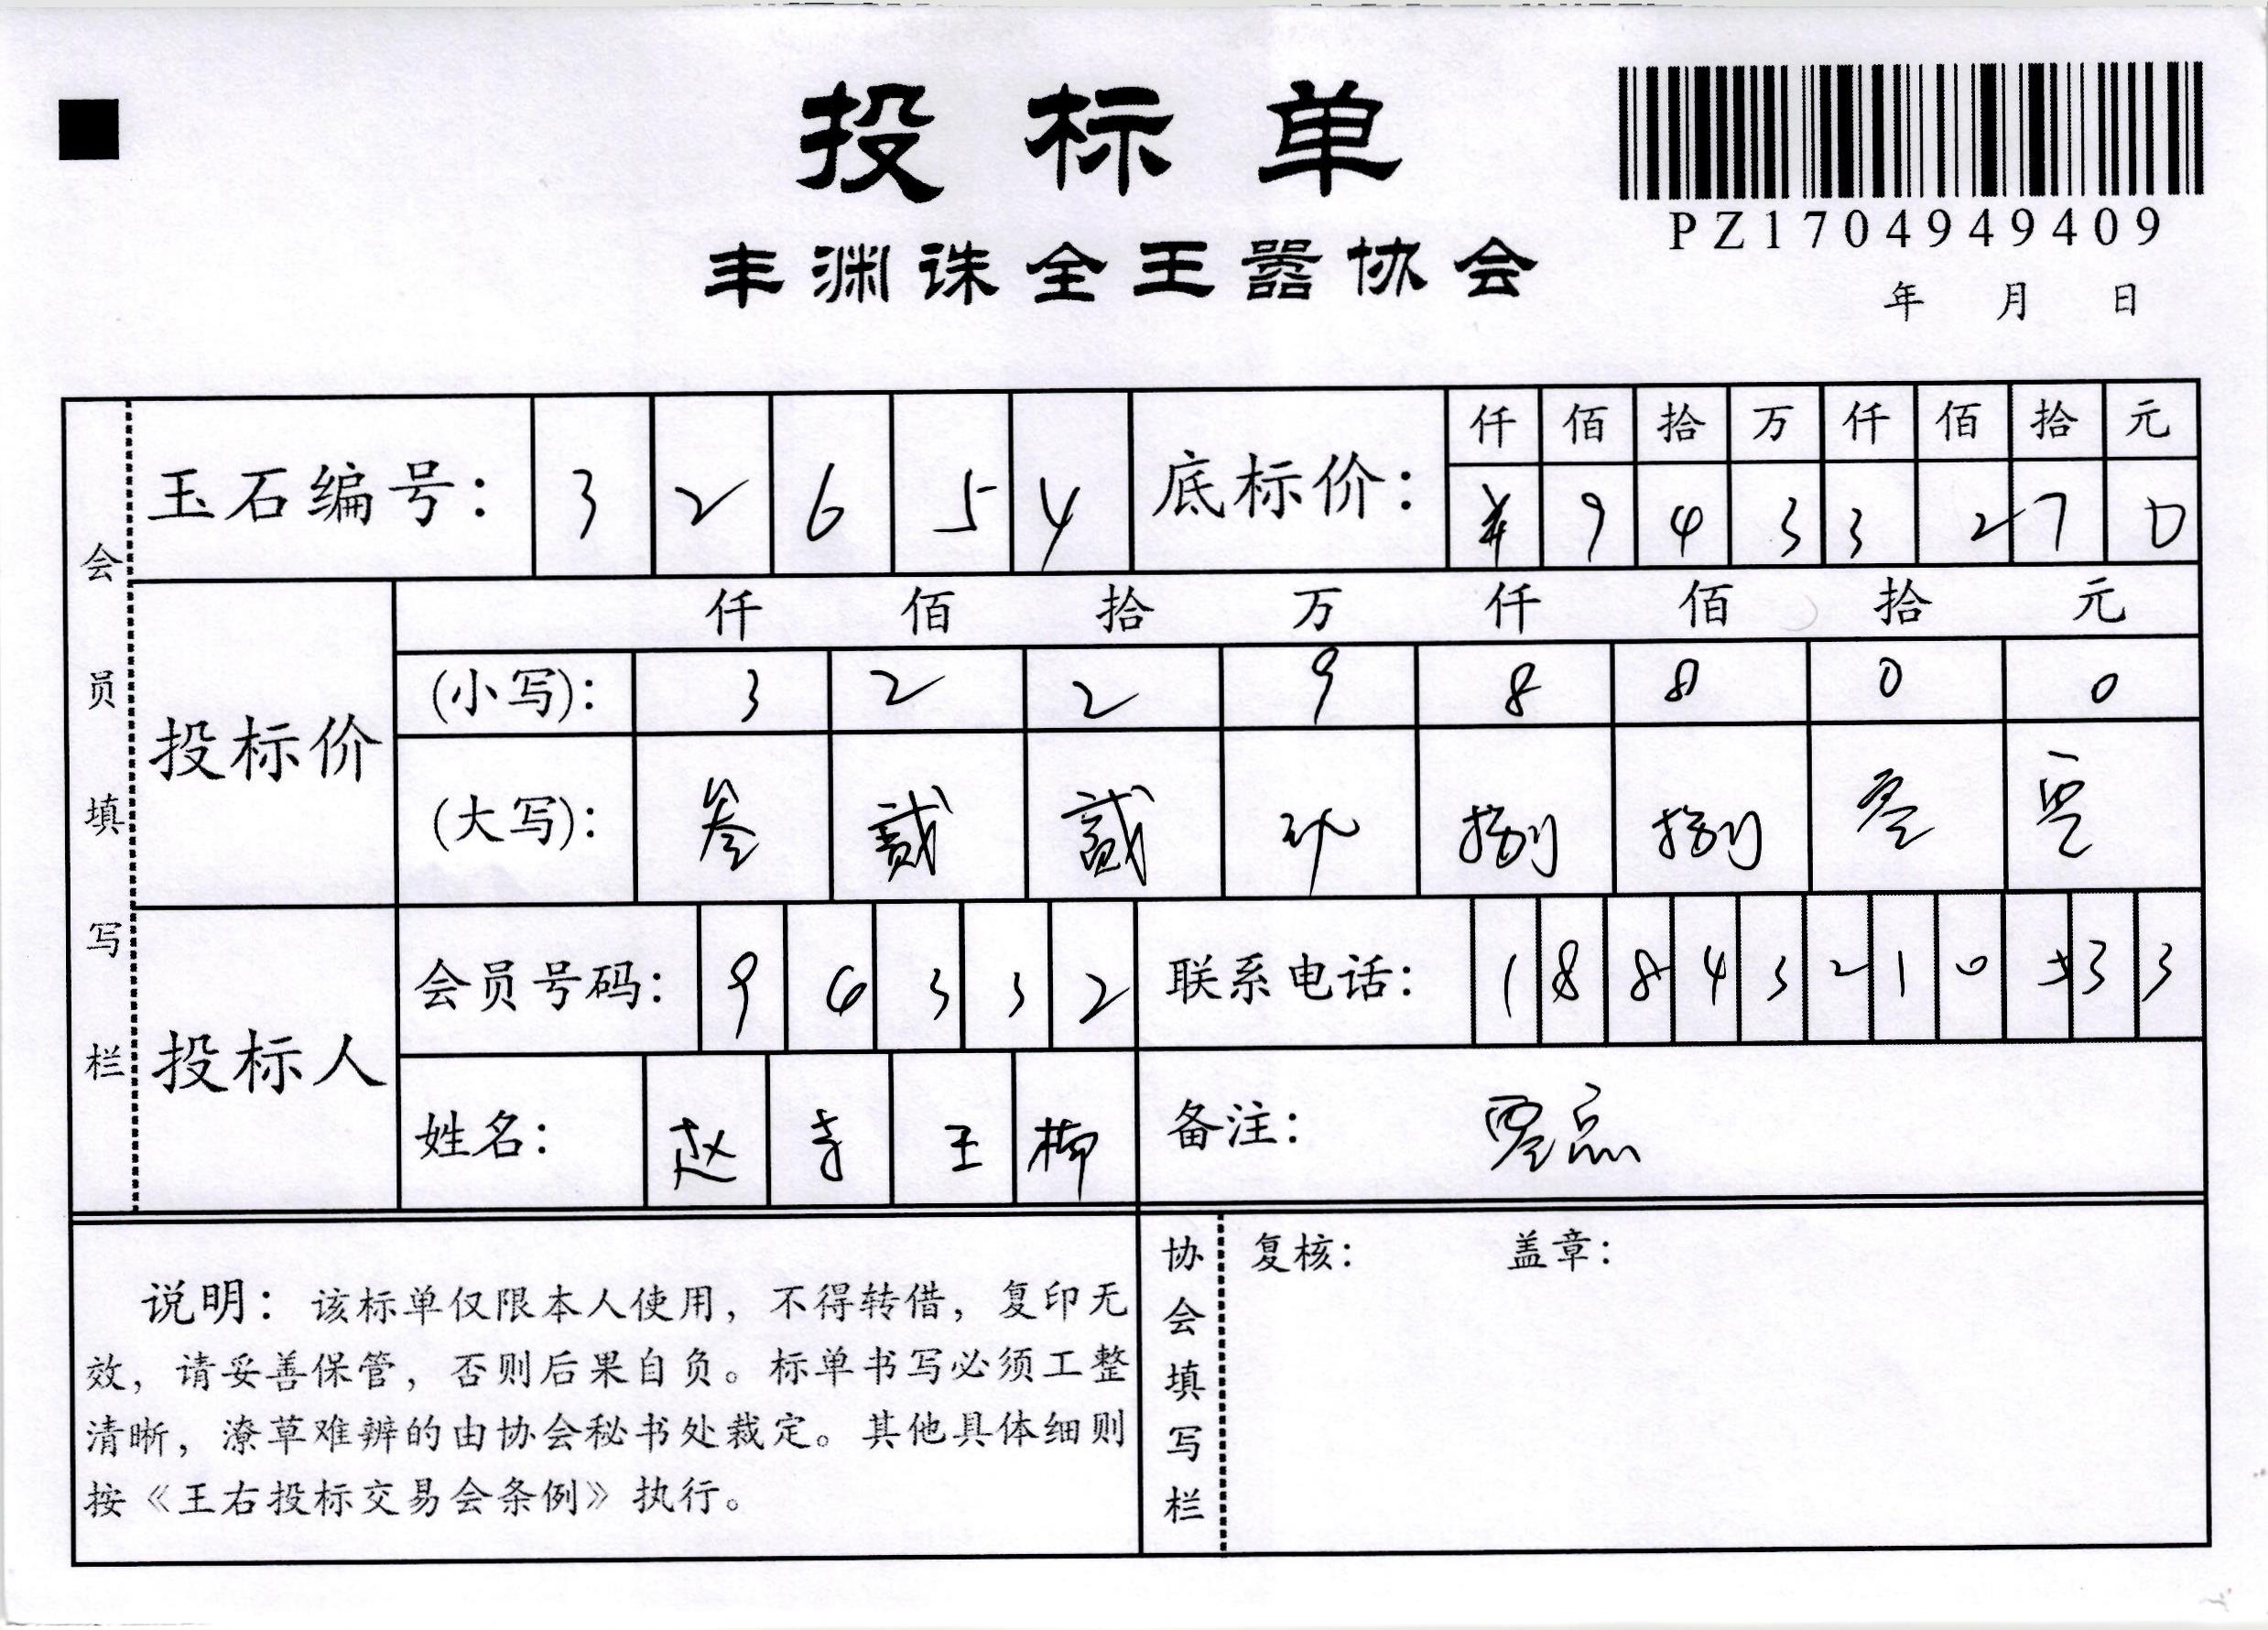 投标单
PZ1704949409
丰渊诛全王嚣协会
年 月 日
会员填写栏
玉石编号: 3 2 6 5 4
底标价: 仟 佰 拾 万 仟 佰 拾 元
¥ 9 4 3 3 2 7 0
投标价
仟 佰 拾 万 仟 佰 拾 元
(小写): 3 2 2 9 8 8 0 0
(大写): 叁 贰 贰 玖 捌 捌 零 零
投标人
会员号码: 9 6 3 3 2
联系电话: 1 8 8 4 3 2 1 0 3 3
姓名: 赵 李 王 柳
备注:
说明: 该标单仅限本人使用, 不得转借, 复印无
效, 请妥善保管, 否则后果自负。标单书写必须工整
清晰, 潦草难辨的由协会秘书处裁定。其他具体细则
按《王右投标交易会条例》执行。
协会填写栏
复核: 盖章: